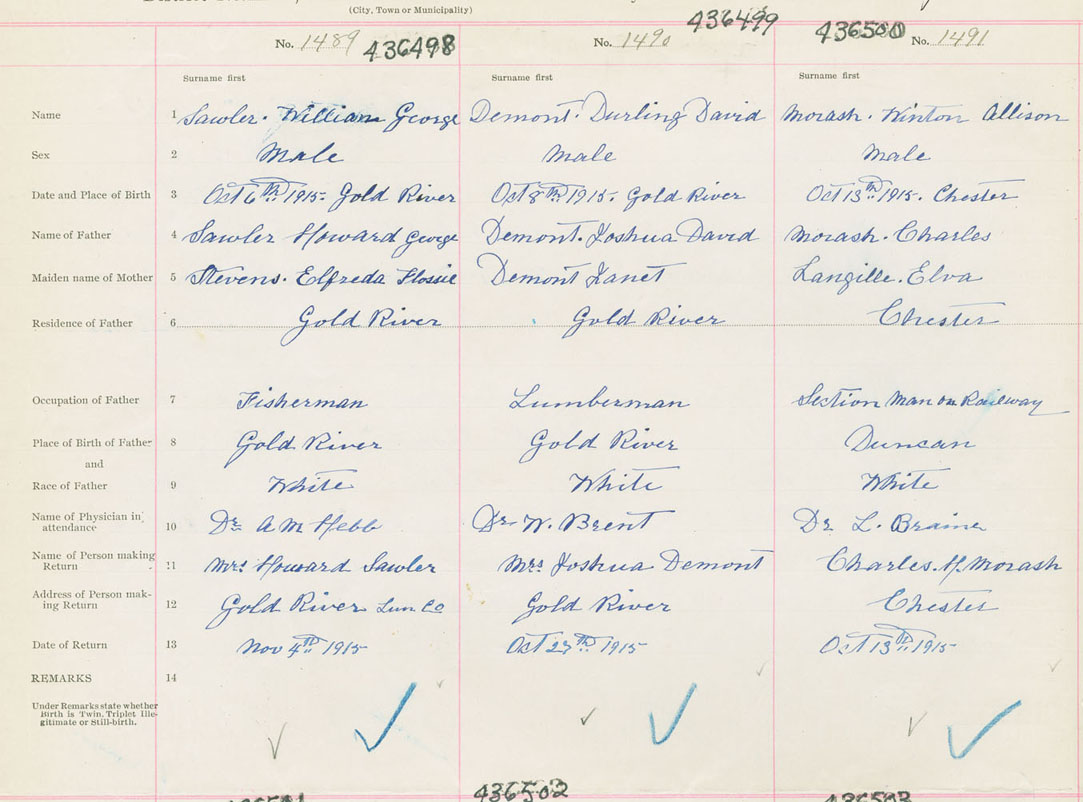 (City, Town or Municipality)
No. 1489 436498 No. 1490 436499 436500 No. 1491
Surname first Surname first Surname first
Name 1 Sawler. William George Demont. Durling David Morash. Winton Allison
Sex 2 Male Male Male
Date and Place of Birth 3 Oct 6th 1915- Gold River Oct 8th 1915- Gold River Oct 13th 1915. Chester
Name of Father 4 Sawler Howard George Demont. Joshua David Morash. Charles
Maiden name of Mother 5 Stevens. Elfreda Flossie Demont Janet Langille. Elva
Residence of Father 6 Gold River Gold River Chester
Occupation of Father 7 Fisherman Lumberman Section Man on Railway
Place of Birth of Father 8 Gold River Gold River Duncan
and
Race of Father 9 White White White
Name of Physician in attendance 10 Dr A M Hebb Dr W. Brent Dr L. Braine
Name of Person making Return 11 Mrs Howard Sawler Mrs Joshua Demont Charles. H. Morash
Address of Person mak-
ing Return 12 Gold River Lun Co Gold River Chester
Date of Return 13 Nov 4th 1915 Oct 27th 1915 Oct 13th 1915
REMARKS 14
Under Remarks state whether
Birth is Twin, Triplet Ille-
gitimate or Still-birth.
436502